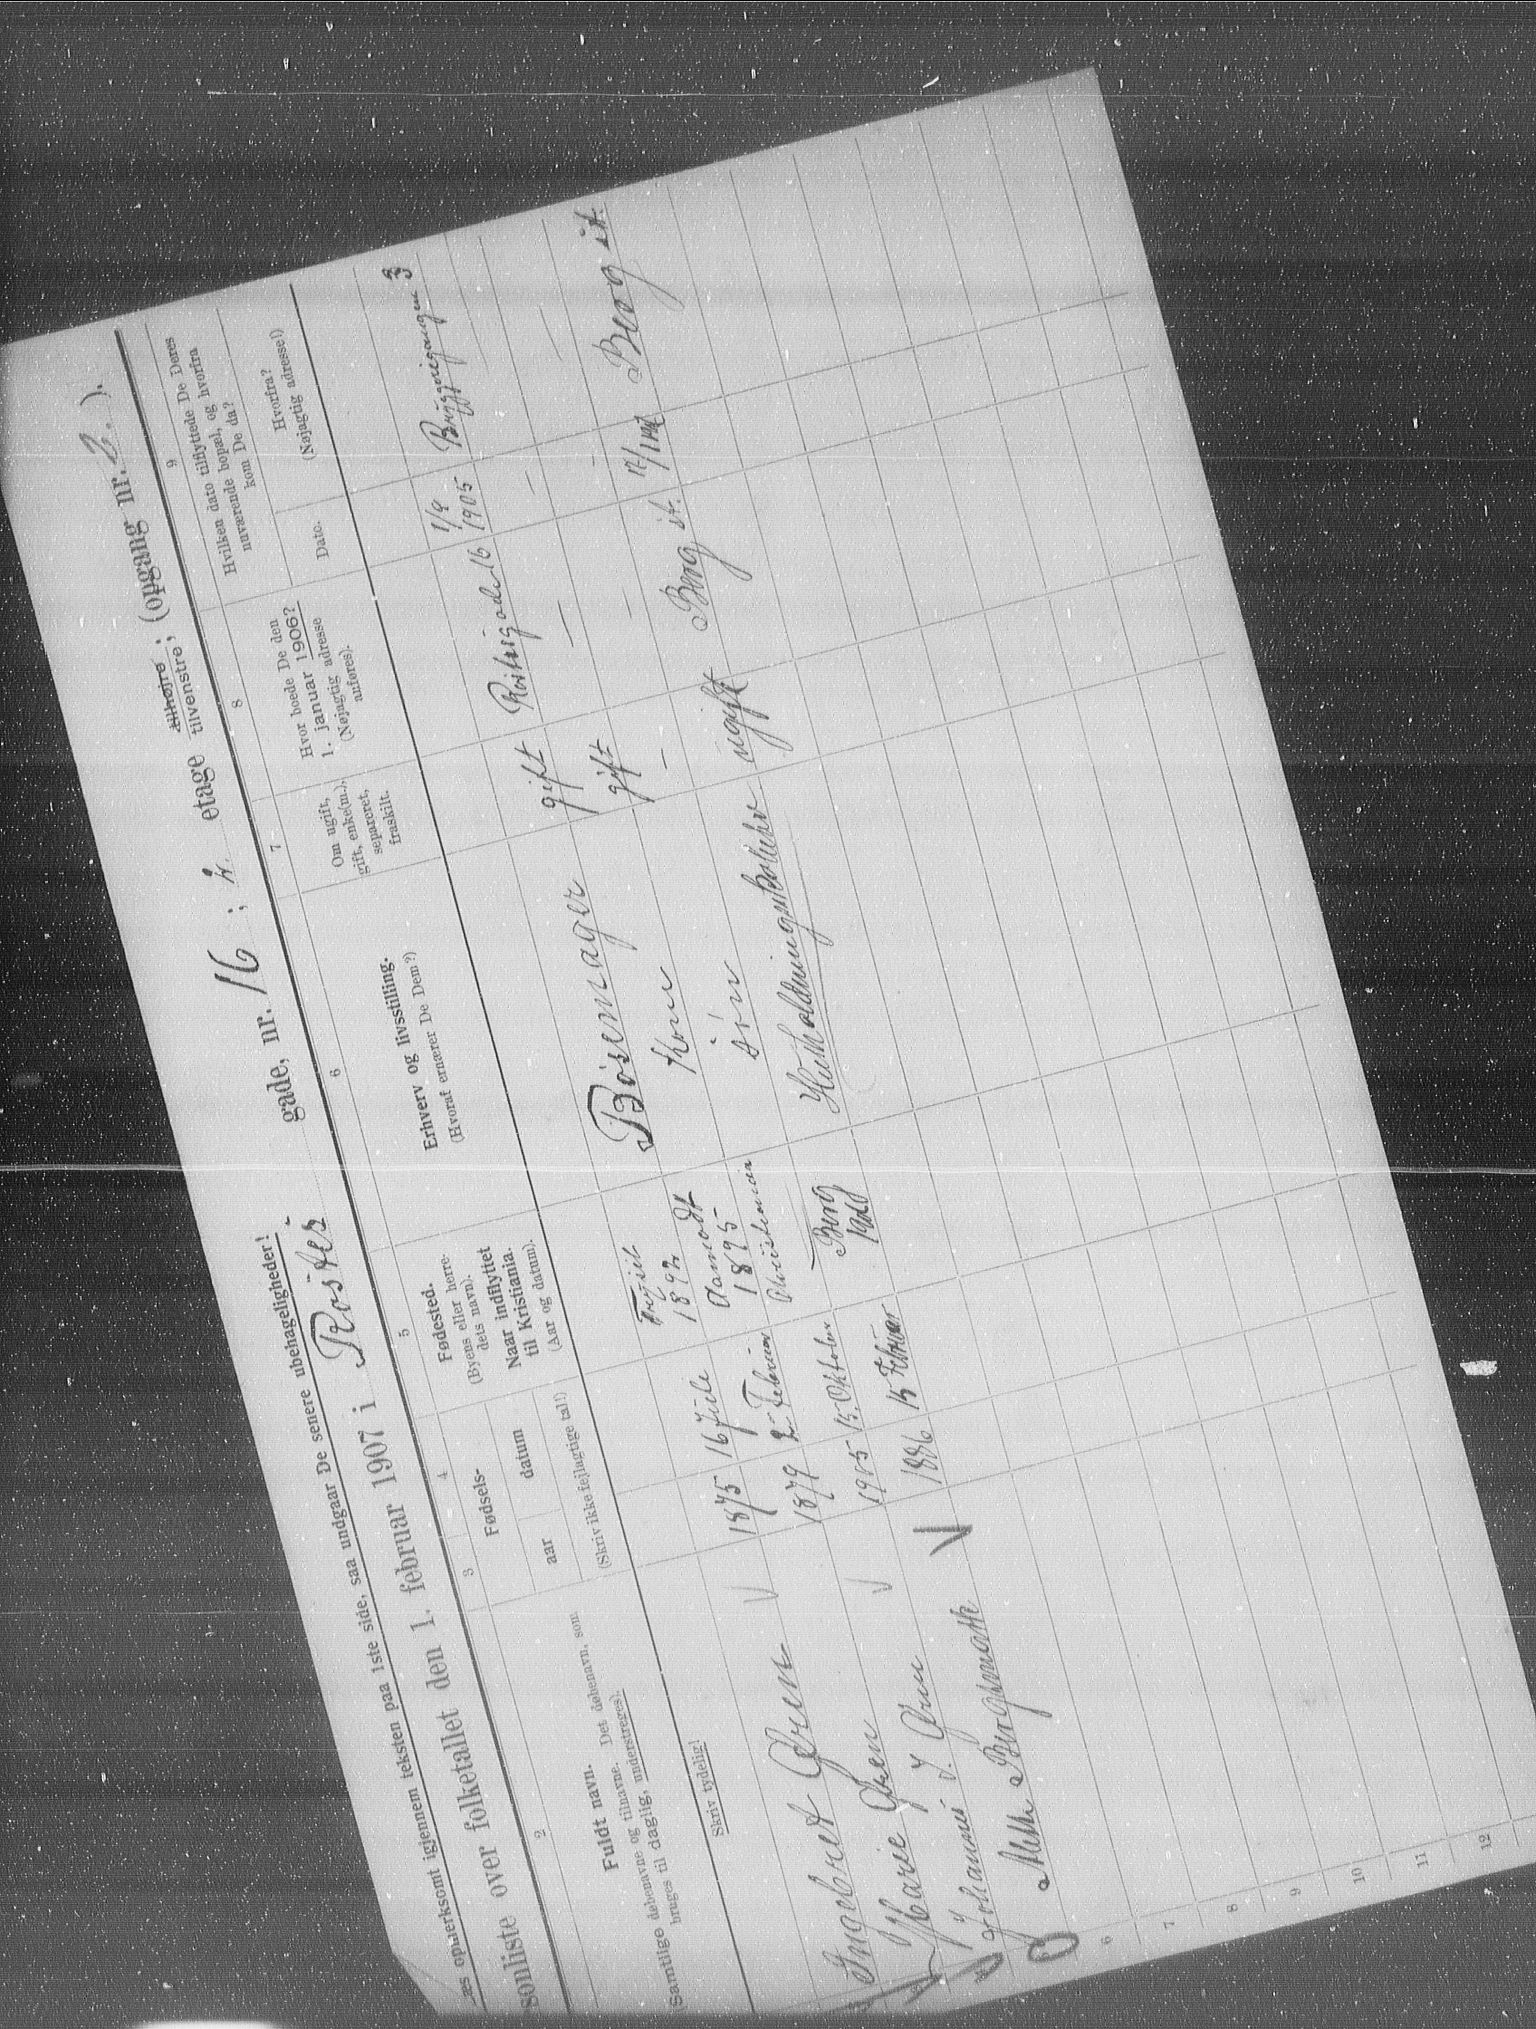 æs opmerksomt igjennem teksten paa 1ste side, saa undgaar De senere ubehageligheder!
sonliste over folketallet den 1. februar 1907 i Rosteds gade, nr. 16 ; 2. etage tilhøjre tilvenstre ; (opgang nr. 2. ).
2 3 4 5 6 7 8 9
Fuldt navn.
(Samtlige døbenavne og tilnavne. Det døbenavn, som
bruges til daglig, understreges).
Skriv tydelig!
Fødsels-
aar datum
(Skriv ikke fejlagtige tal!)
Fødested.
(Byens eller herre-
dets navn).
Naar indflyttet
til Kristiania.
(Aar og datum).
Erhverv og livsstilling.
(Hvoraf ernærer De Dem?)
Om ugift,
gift, enke(m.),
separeret,
fraskilt.
Hvor boede De den
1. januar 1906?
(Nøjagtig adresse
anføres).
Hvilken dato tilflyttede De Deres
nuværende bopæl, og hvorfra
kom De da?
Dato.
Hvorfra?
(Nøjagtig adresse!)
Ingebret Øren 1875 16 Juli Trysil 1892 Børsemager gift Rostedsgade 16 1/9 1905 Bryggerigangen 3
Marie Øren 1879 2 Februar Aamodt 1895 Kone gift — — —
Johannes I. Øren 1905 15. Oktober Christiania Søn — — — —
Mette Bergsmark 1886 15 Februar Berg Husholdningselev ugift Berg st. Berg st.
6
7
8
9
10
11
12